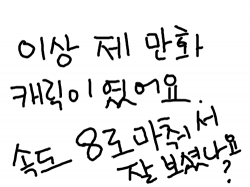 이상 제 만화
캐릭이였어요.
속도 8로 마춰서
잘 보셨나요?